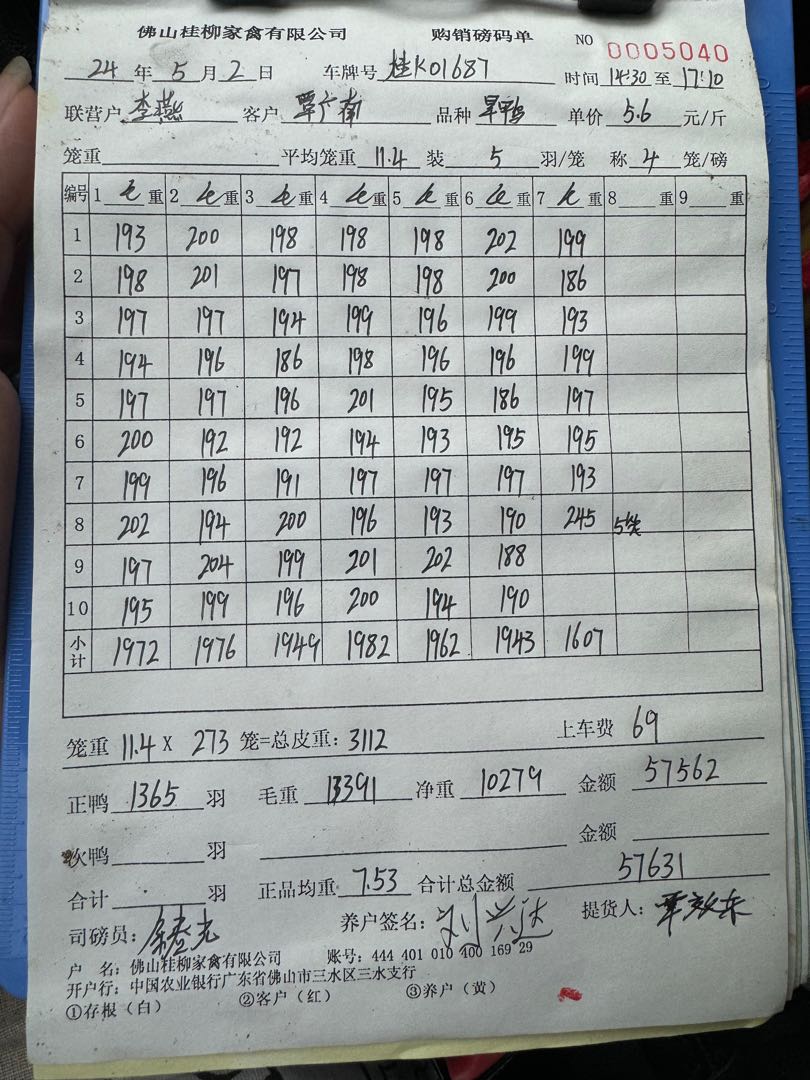 佛山桂柳家禽有限公司 购销磅码单 NO 0005040
24 年 5 月 2 日 车牌号 桂K01687 时间 14:30 至 17:10
联营户 李燕 客户 覃广南 品种 旱鸭 单价 5.6 元/斤
笼重 平均笼重 11.4 装 5 羽/笼 称 4 笼/磅
编号 1 毛 重 2 毛 重 3 毛 重 4 毛 重 5 毛 重 6 毛 重 7 毛 重 8 重 9 重
1 193 200 198 198 198 202 199
2 198 201 197 198 198 200 186
3 197 197 194 199 196 199 193
4 194 196 186 198 196 196 199
5 197 197 196 201 195 186 197
6 200 192 192 194 193 195 195
7 199 196 191 197 197 197 193
8 202 194 200 196 193 190 245 5笼
9 197 204 199 201 202 188
10 195 199 196 200 194 190
小计 1972 1976 1949 1982 1962 1943 1607
笼重 11.4 X 273 笼=总皮重: 3112 上车费 69
正鸭 1365 羽 毛重 13391 净重 10279 金额 57562
次鸭 羽 金额
合计 羽 正品均重 7.53 合计总金额 57631
司磅员: 养户签名: 提货人:
户 名: 佛山桂柳家禽有限公司 账号: 444 401 010 400 169 29
开户行: 中国农业银行广东省佛山市三水区三水支行
①存根（白） ②客户（红） ③养户（黄）